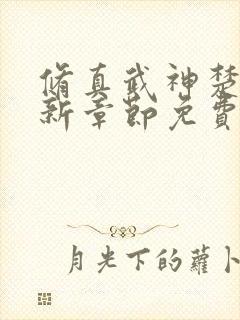 脩真武神楚
新章節免費
月光下的蘿卜